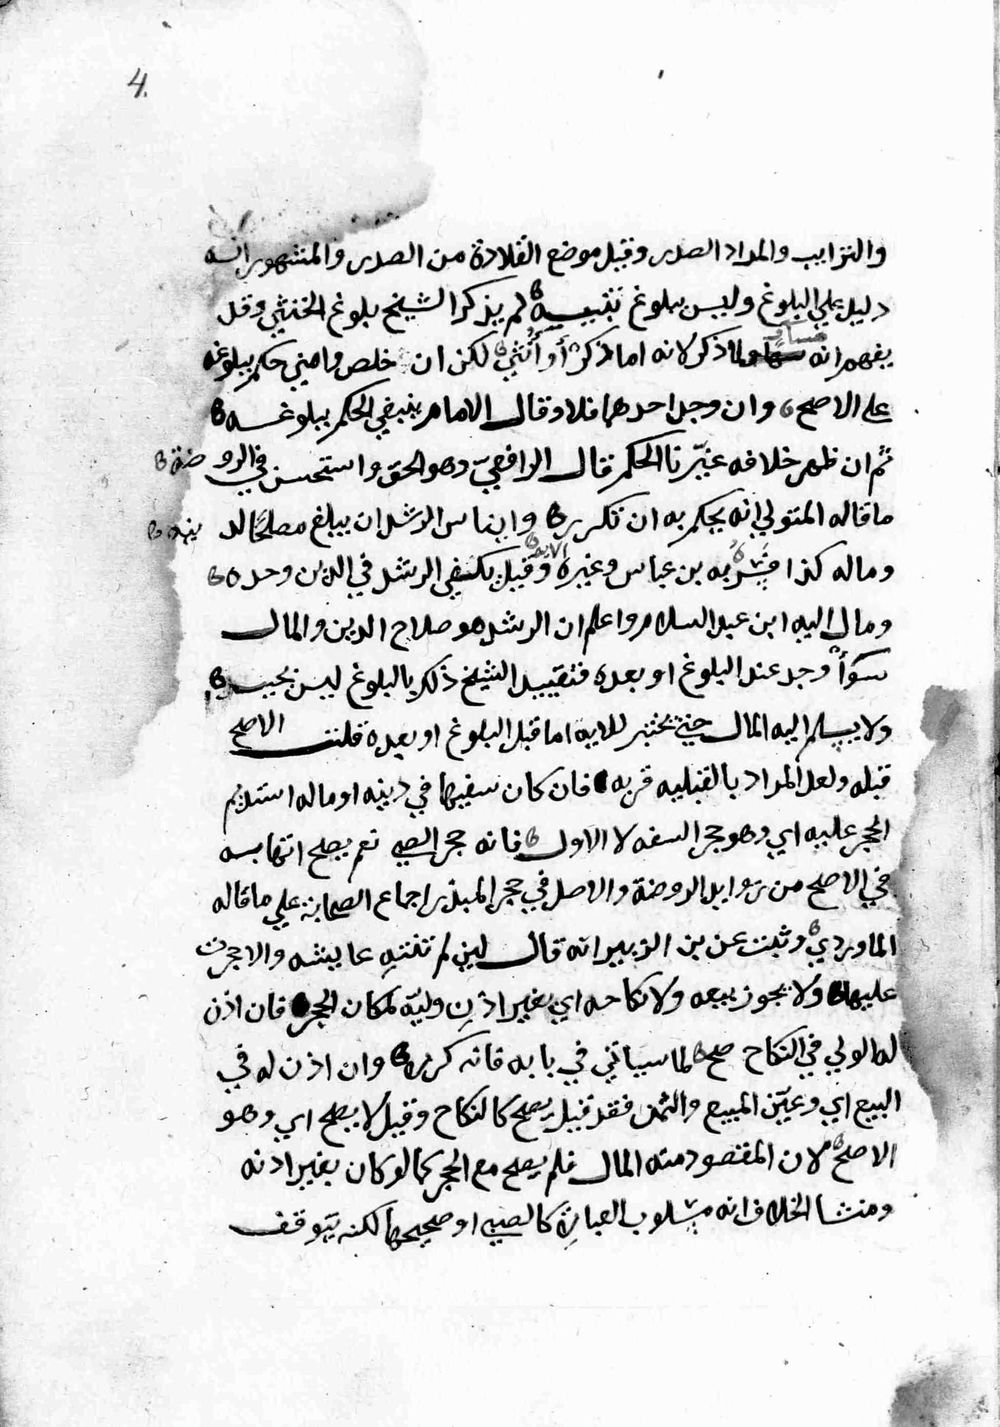 4.
والترايب والمراد الصدر وقيل موضع القلادة من الصدر والمشهور انه
دليل علي البلوغ وليس ببلوغ تنبيه لم يذكر الشيخ بلوغ الخنثي وقد
يفهم انه مساو لما ذكر لانه اما ذكرٌ أو أُنثي لكن ان خلص وامني حكم ببلوغه
علي الاصح وان وجد احدهما فلا وقال الامام ينبغي الحكم ببلوغه
ثم ان ظهر خلافه غيّرنا الحكم قال الرافعيّ وهو الحق واستحسن في الروضة
ما قاله المتولي انه يحكم به ان تكرر وايناس الرشد ان يبلغ مصلحًا لدينه
وماله كذا فسّر به بن عباس وغيره الايه وقيل يكتفي الرشد في الدين وحده
ومال اليه ابن عبد السلام واعلم ان الرشد هو صلاح الدين والمال
سوآ وجد عند البلوغ او بعده فتقييد الشيخ ذلك بالبلوغ ليس بجيد
ولا يسلم اليه المال حتي يختبر للايه اما قبل البلوغ او بعده قلت الاصح
قبله ولعل المراد بالقبليه قربه فان كان سفيها في دينه او ماله استديم
الحجر عليه اي وهو حجر السفه لا الاول فانه حجر الصبي نعم يصح اتهابه
في الاصح من زوايد الروضة والاصل في حجر المبذر اجماع الصحابة علي ما قاله
الماوردي وثبت عن بن الزبير انه قال لين لم تنته عايشه والا حجرت
عليها ولا يجوز بيعه ولا نكاحه اي بغير اذن وليّه لمكان الحجر فان اذن
له الولي في النكاح صح لما سياتي في بابه فانه كرره وان اذن له في
البيع اي وعيّن المبيع والثمن فقد قيل يصح كالنكاح وقيل لا يصح اي وهو
الاصح لان المقصود منه المال فلم يصح مع الحجر كما لو كان بغير اذنه
ومنشا الخلاف انه مسلوب العبارة كالصبي او صحيحها لكنه يتوقف